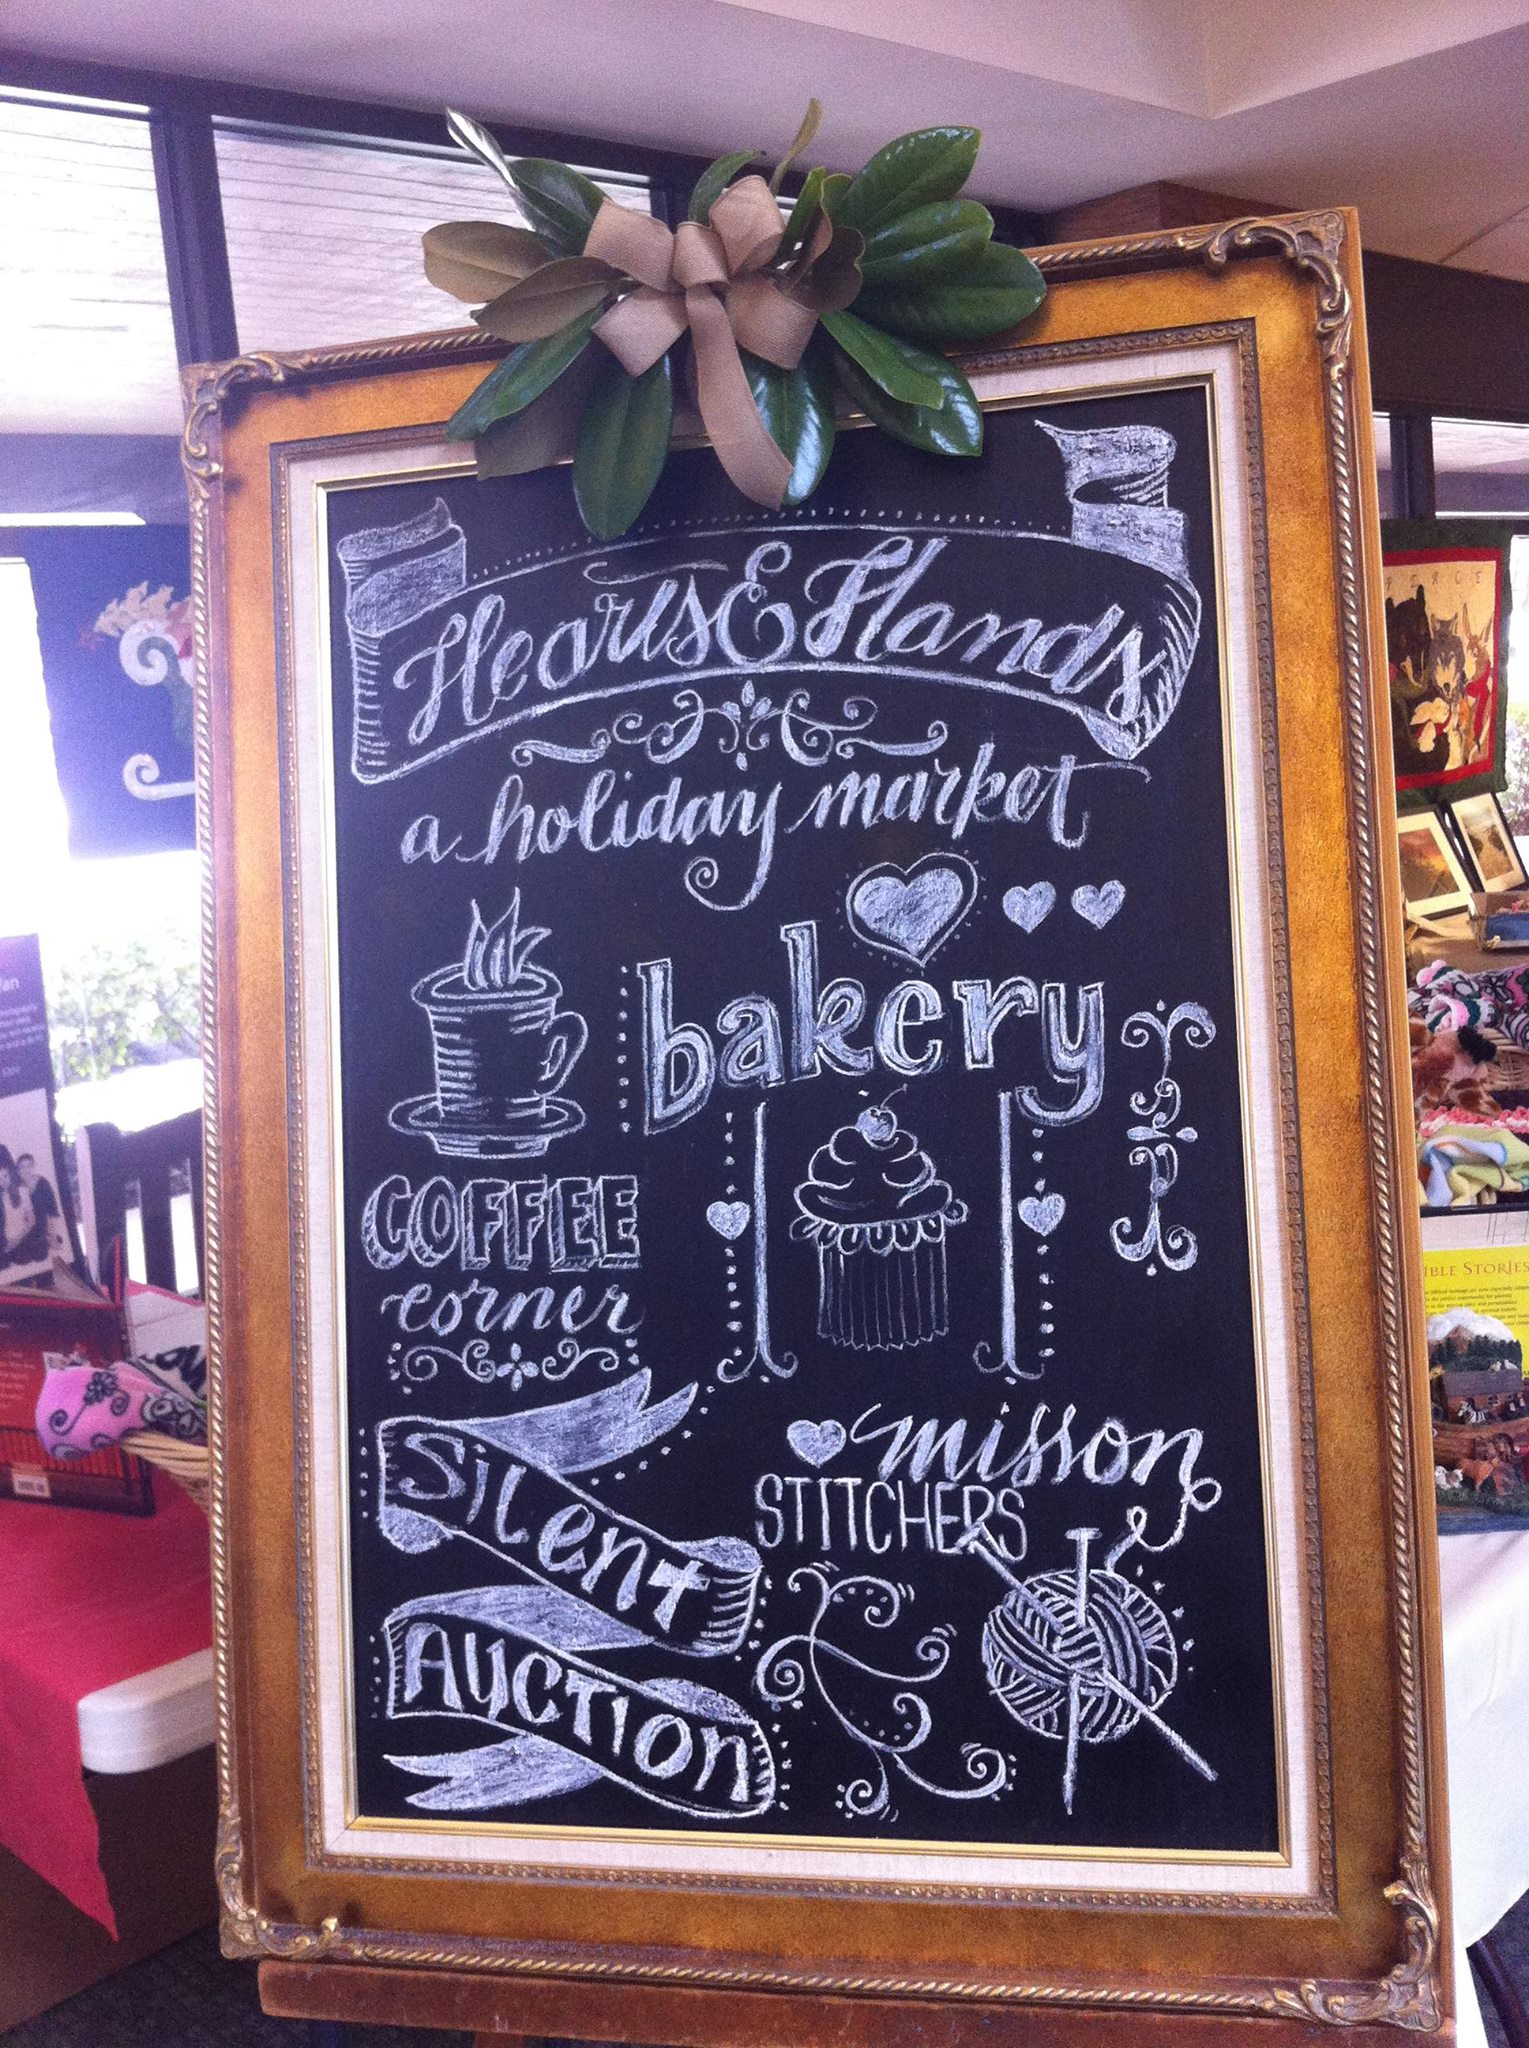 Hearts & Hands
a holiday market
bakery
COFFEE
corner
Silent
AUCTION
misson
STITCHERS
PEACE
IBLE STORIES